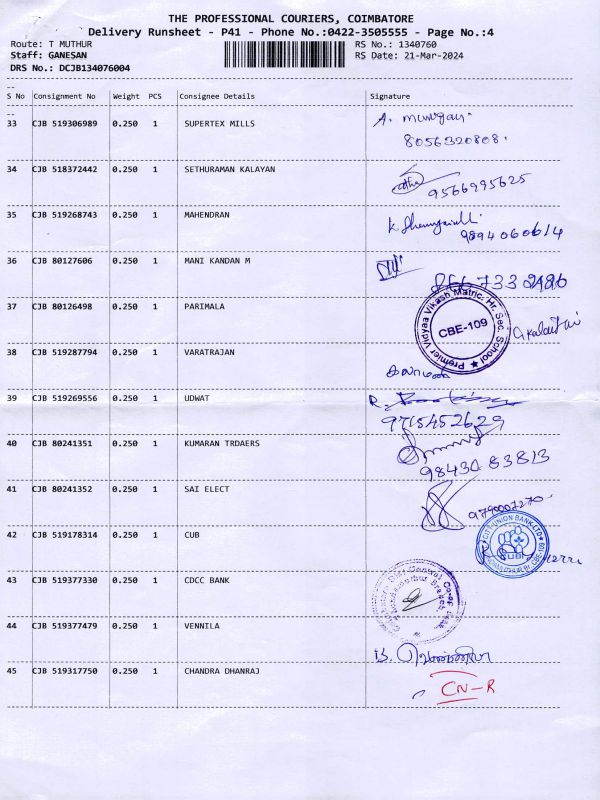 THE PROFESSIONAL COURIERS, COIMBATORE
Delivery Runsheet - P41 - Phone No.:0422-3505555 - Page No.:4
Route: T MUTHUR RS No.: 1340760
Staff: GANESAN RS Date: 21-Mar-2024
DRS No.: DCJB134076004
S No Consignment No Weight PCS Consignee Details Signature
33 CJB 519306989 0.250 1 SUPERTEX MILLS A. Murugan
8056320808
34 CJB 518372442 0.250 1 SETHURAMAN KALAYAN
9566995625
35 CJB 519268743 0.250 1 MAHENDRAN
9894060614
36 CJB 80127606 0.250 1 MANI KANDAN M
37 CJB 80126498 0.250 1 PARIMALA
Premier Vidyaa Vikash Matric. Hr. Sec. School
CBE-109
38 CJB 519287794 0.250 1 VARATRAJAN
39 CJB 519269556 0.250 1 UDWAT
9715452629
40 CJB 80241351 0.250 1 KUMARAN TRDAERS
98430 83813
41 CJB 80241352 0.250 1 SAI ELECT
9790007270
42 CJB 519178314 0.250 1 CUB
CITY UNION BANK LTD
CUB
43 CJB 519377330 0.250 1 CDCC BANK
44 CJB 519377479 0.250 1 VENNILA
45 CJB 519317750 0.250 1 CHANDRA DHANRAJ
CN-R